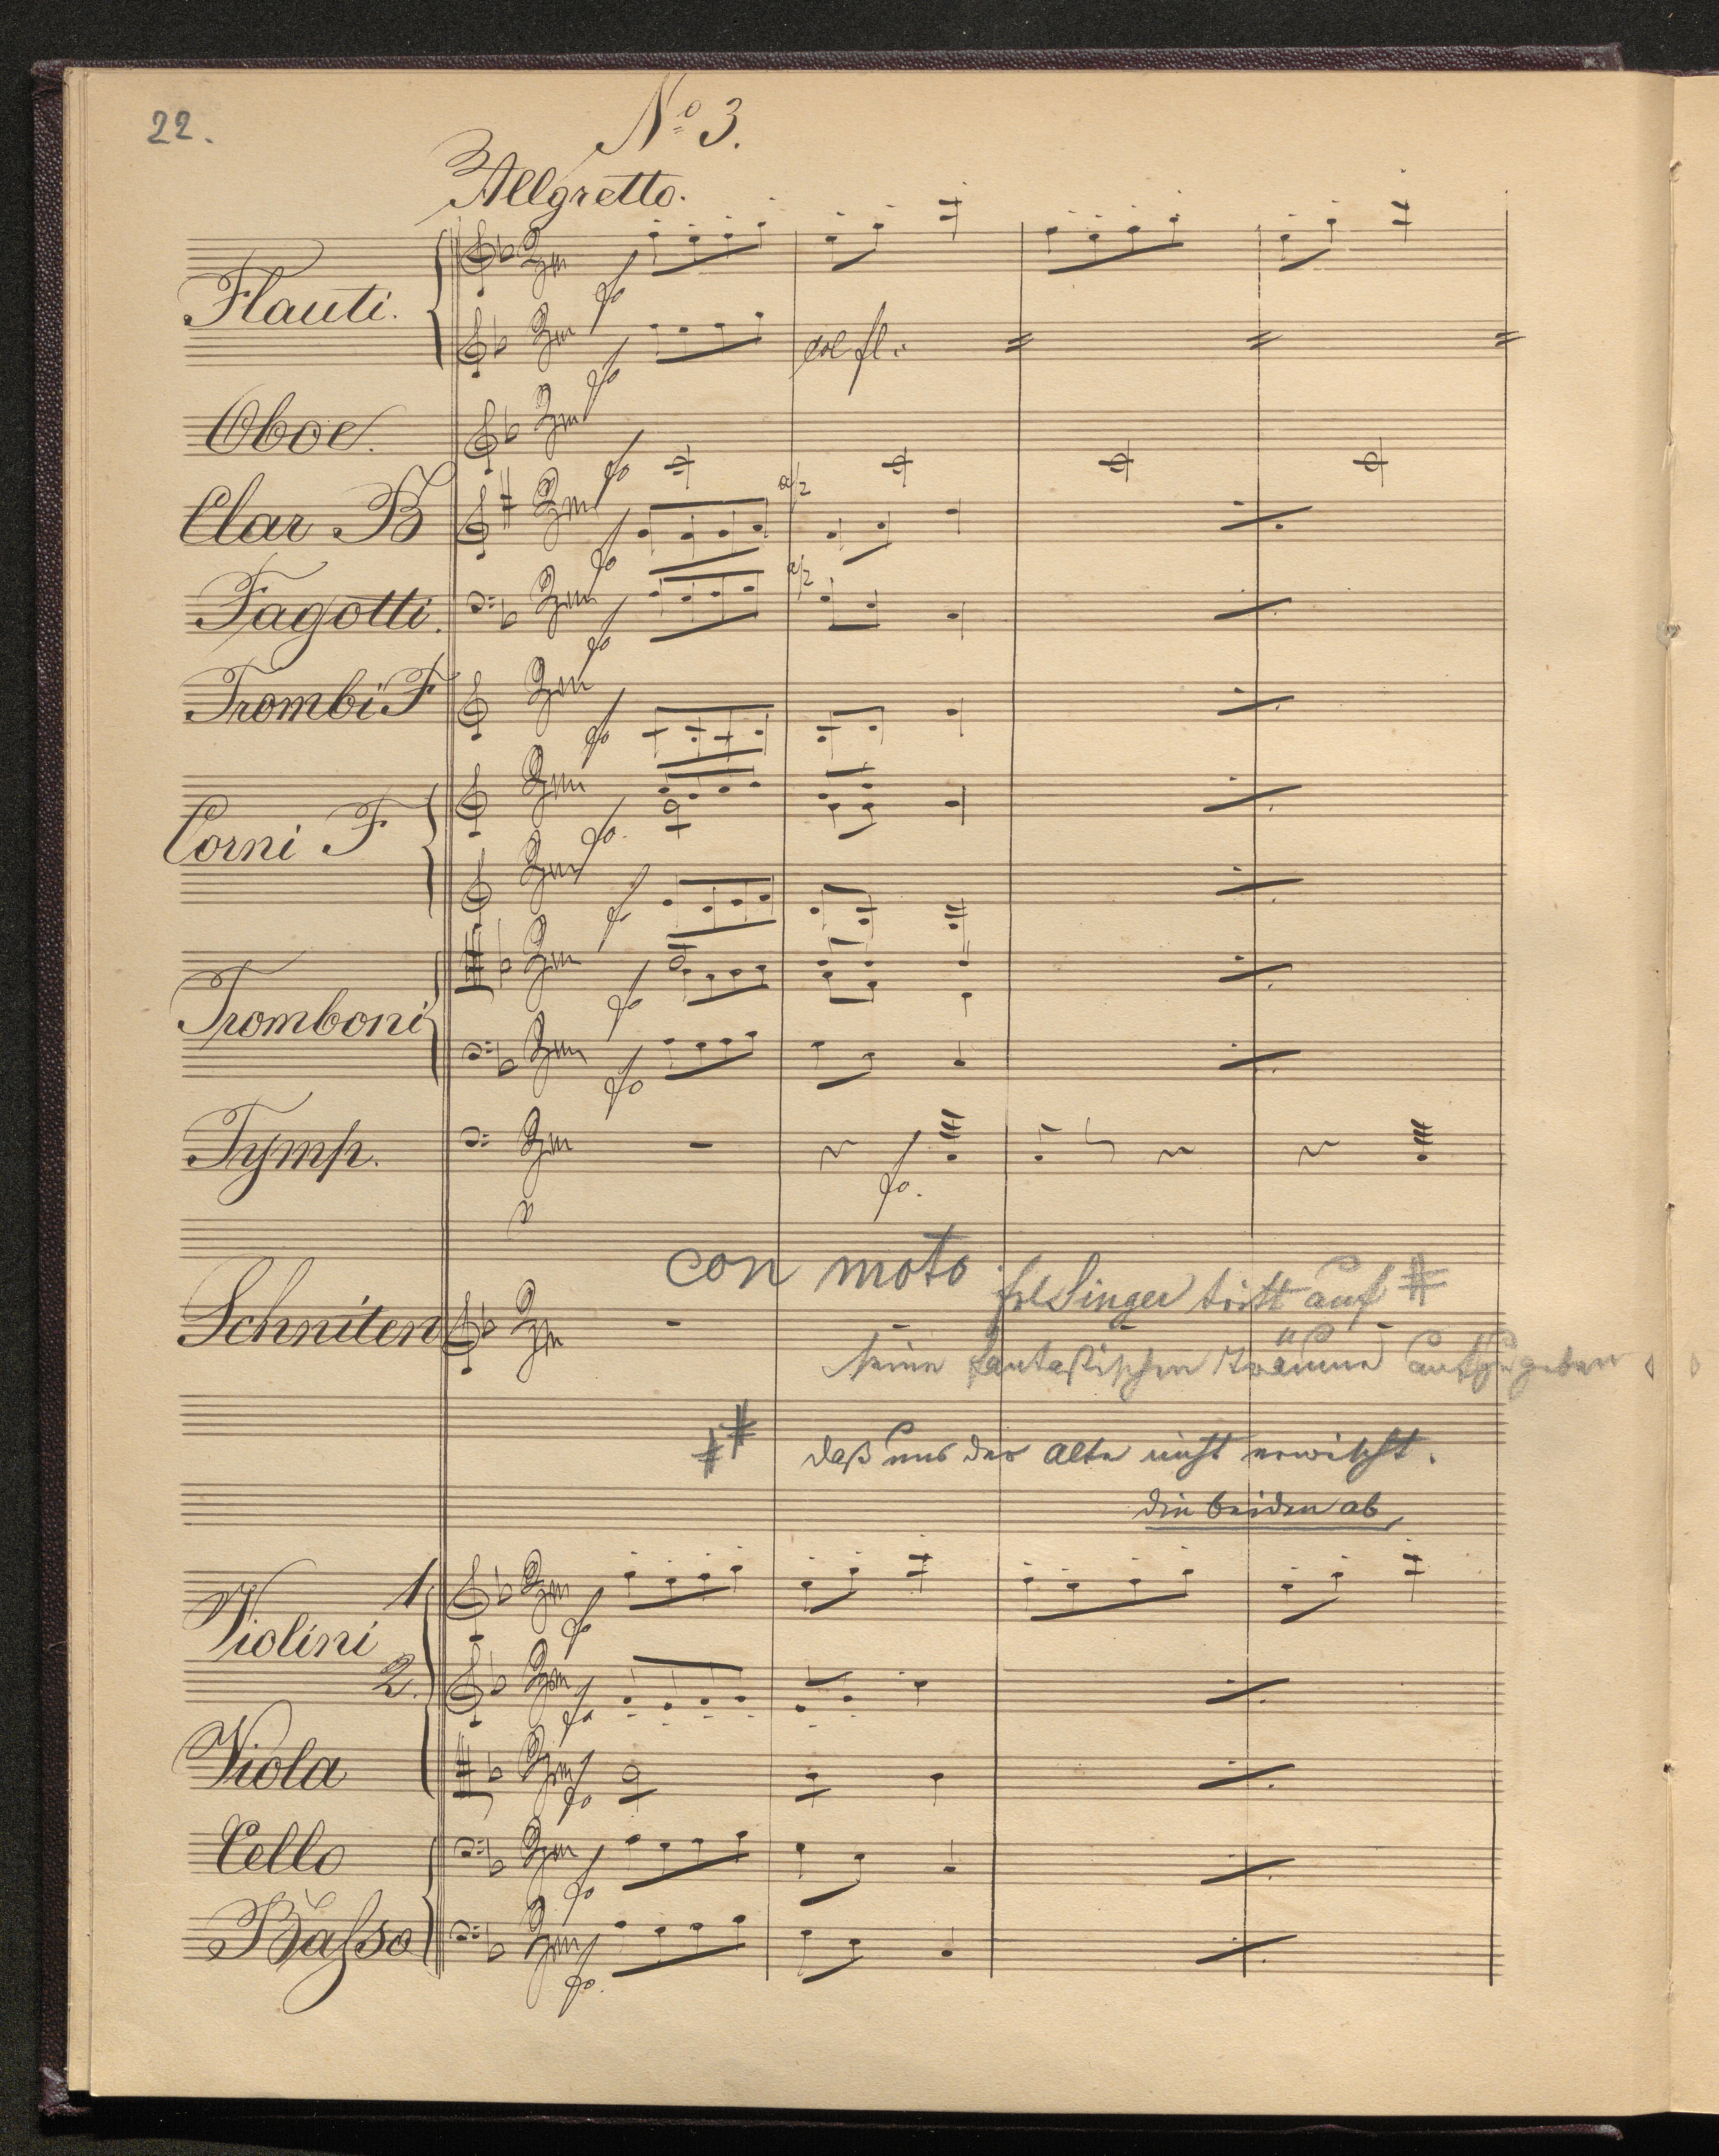 22.
No 3.
Allgretto.
Flauti.
col fl.
Oboe.
Clar B
a/2
Fagotti.
a/2
Trombi F
Corni F
Tromboni
Tymp.
con moto
Singer tritt auf #
Schniten
seine fantastischen Träume aufzugeben
## daß uns der alte nicht erwischt.
die beiden ab
Violini 1
2.
Viola
Cello
Baſso